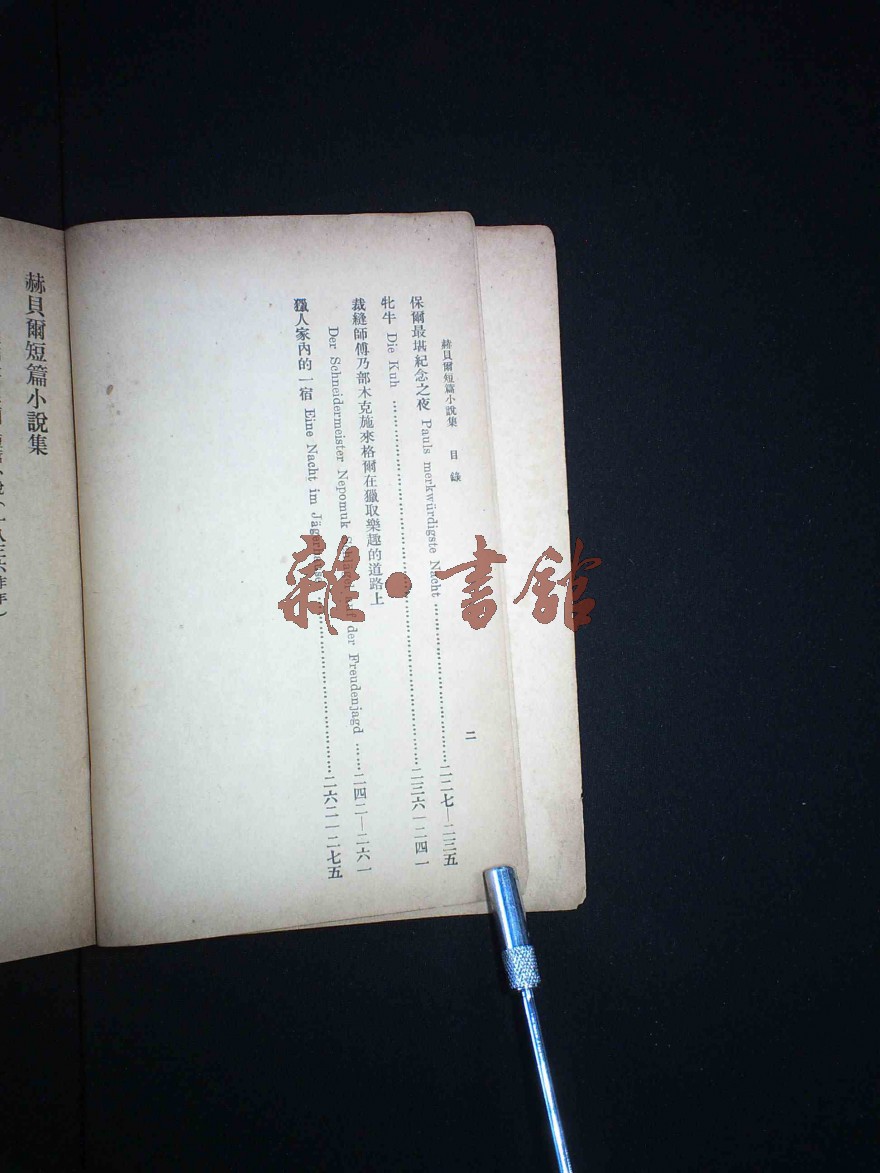 赫貝爾短篇小說集 目錄 二
保爾最堪紀念之夜 Pauls merkwürdigste Nacht ……… 二二七—二三五
牝牛 Die Kuh ……… 二三六—二四一
裁縫師傅乃部木克施來格爾在獵取樂趣的道路上
Der Schneidermeister Nepomuk der Freudenjagd …… 二四二—二六一
獵人家內的一宿 Eine Nacht im ……… 二六二—二七五
赫貝爾短篇小說集
雜·書館